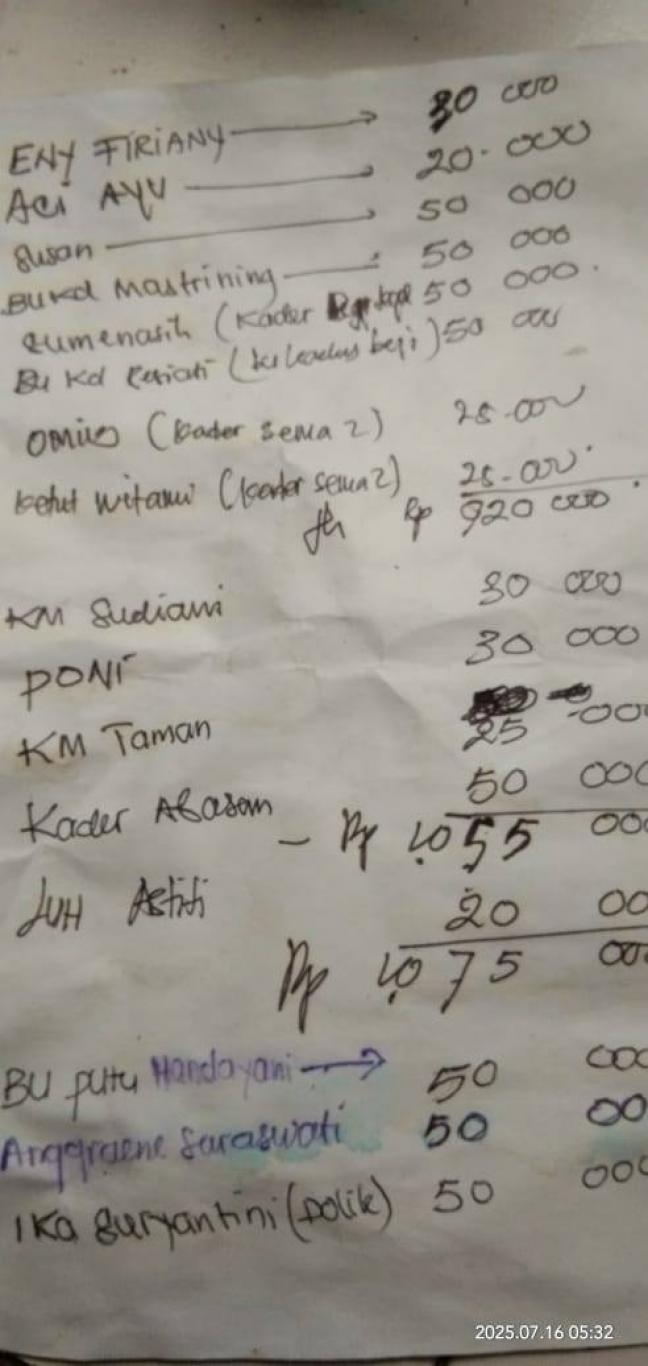 ENY FIRIANY → 30 000
Aci AYU — 20.000
Susan — 50 000
Bu Kd Mastrining — 50 000
Sumenasih (Kader 50 000.
Bu Kd 50 000
omiio (Kader Sema 2) 25.000
Ketut Witami (Kader Sema 2) 25.000
Jlh Rp 920 000.
KM Sudiani 30 000
PONI 30 000
KM Taman 25 .000
Kader Abasan 50 000
- Rp 1.055 000
LUH Astiti 20 00
Rp 1.075 00
BU putu Handayani → 50 000
Anggraene Saraswati 50 00
IKa Suryantini (polik) 50 000
2025.07.16 05:32